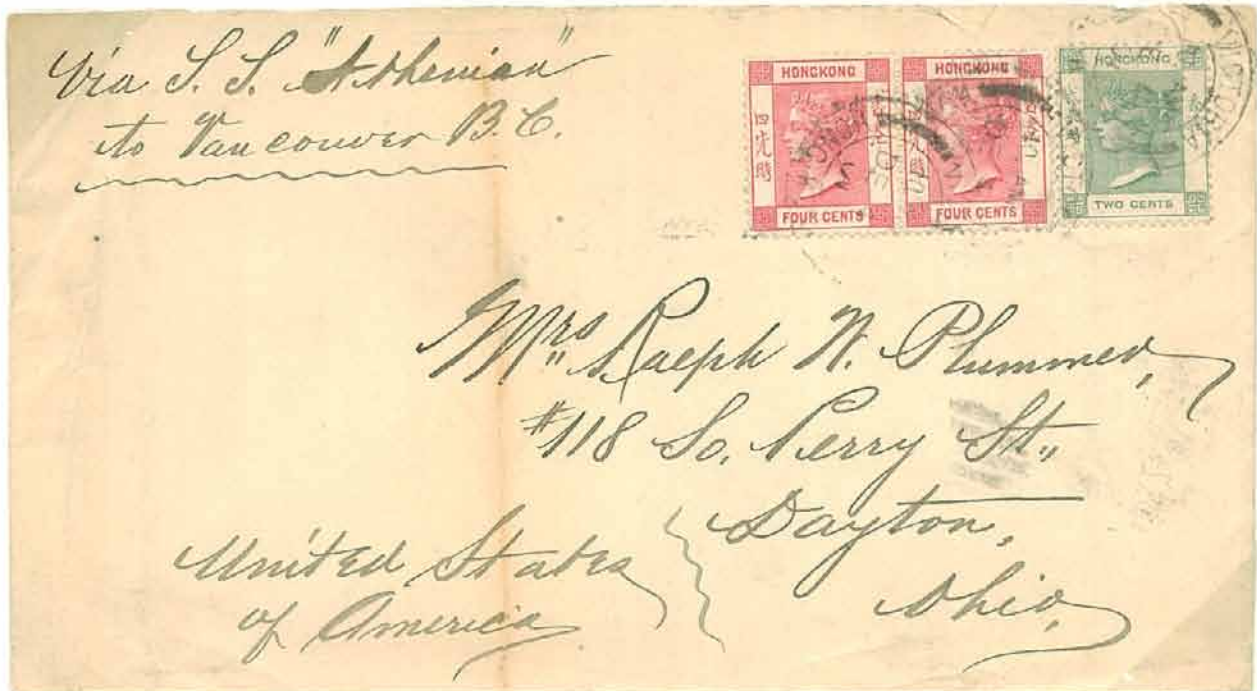 Via S. S. "Athenian"
to Vancouver B.C.
HONGKONG
FOUR CENTS
HONGKONG
FOUR CENTS
HONGKONG
TWO CENTS
VICTORIA
Mrs Ralph W. Plummer,
#118 So. Perry St.,
Dayton,
Ohio,
United States
of America